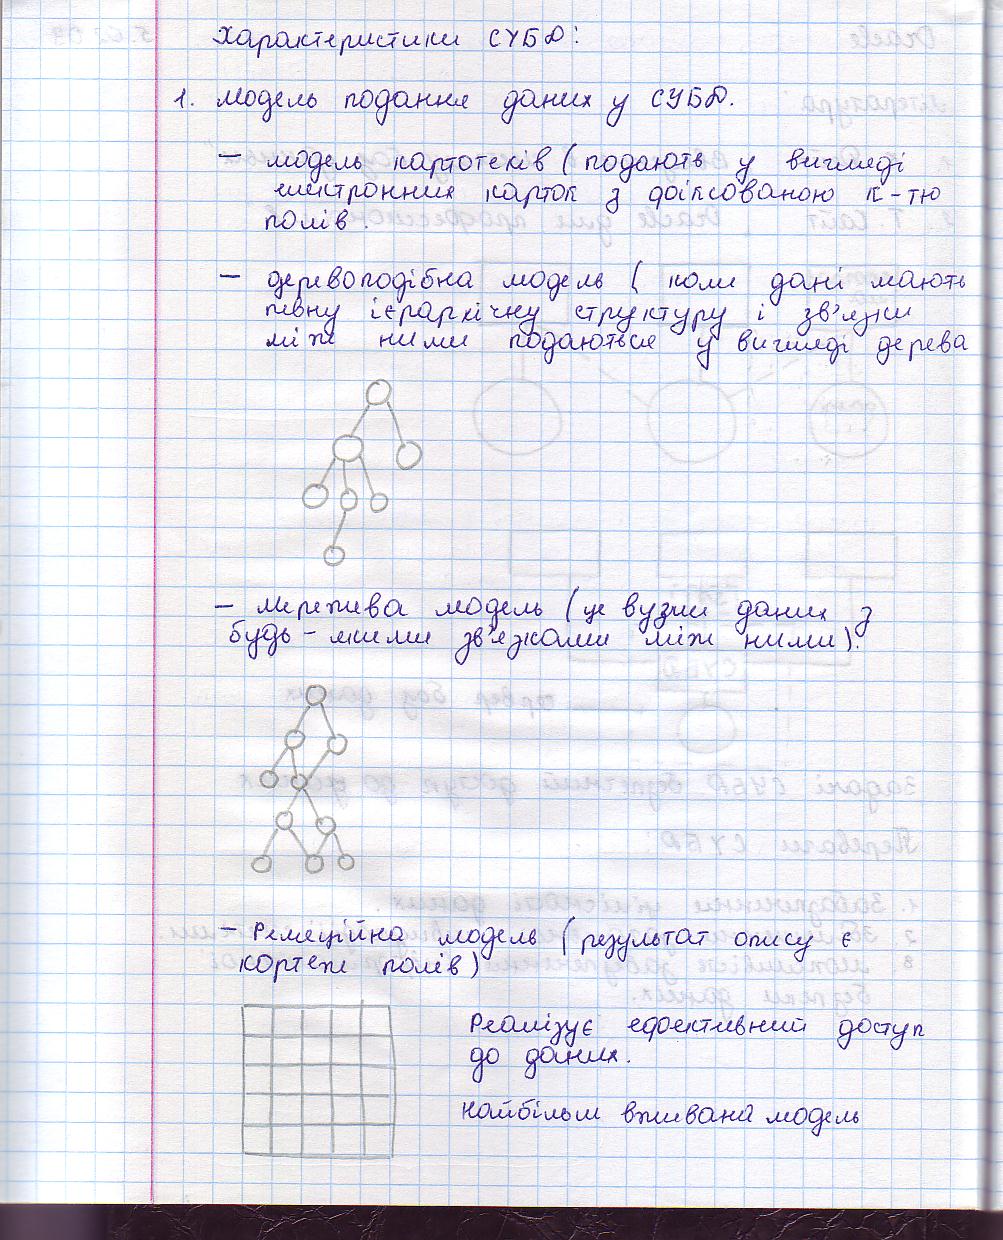 Характеристики СУБД:
1. Модель подання даних у СУБД.
– модель картотеків (подають у вигляді
електронних карток з фіксованою к-тю
полів.
– деревоподібна модель (коли дані мають
певну ієрархічну структуру і зв'язки
між ними подаються у вигляді дерева
– мережива модель (це вузли даних з
будь-якими зв'язками між ними).
– Реляційна модель (результат опису є
кортеж полів)
Реалізує ефективний доступ
до даних.
найбільш вживана модель